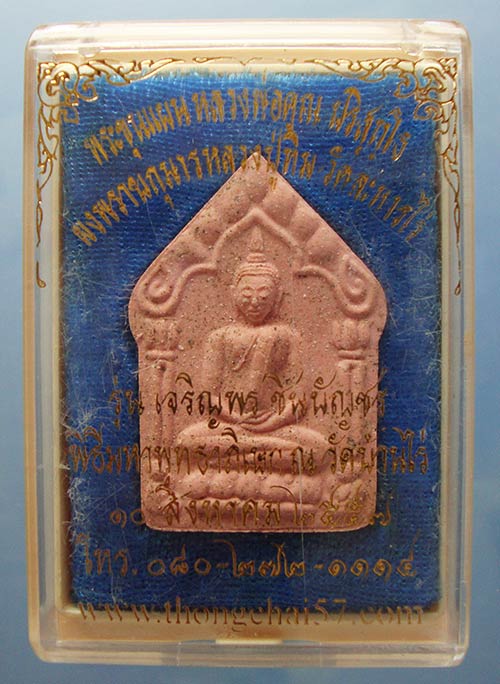 พระขุนแผน หลวงพ่อคูณ ปริสุทโธ
ผงพรายกุมารหลวงปู่ทิม วัดละหารไร่
รุ่น เจริญพร ชินบัญชร
พิธีมหาพุทธาภิเษก ณ วัดบ้านไร่
๑๐ สิงหาคม ๒๕๕๗
โทร. ๐๘๐-๒๗๒-๑๑๑๔
www.thongchai57.com